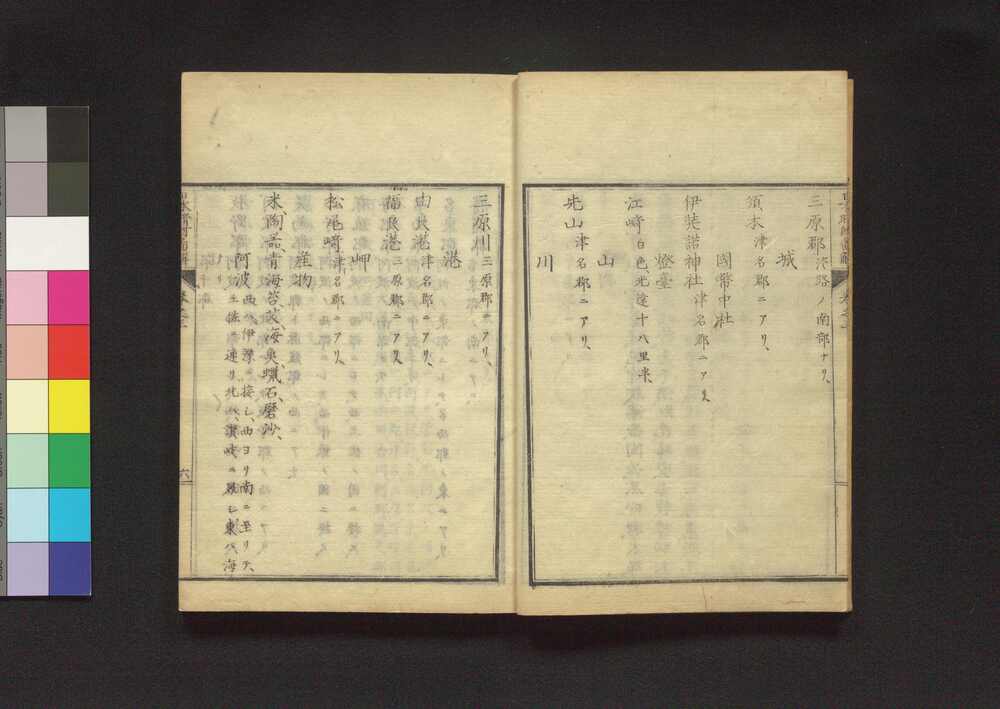 三原郡淡路ノ南部ナリ、
城
須本津名郡ニアリ、
國幣中社
伊弉諾神社津名郡ニアリ、
燈臺
江﨑白色、光達十八里半、
山
先山津名郡ニアリ、
川
三原川三原郡ニアリ、
港
由良港津名郡ニアリ、
福良港三原郡ニアリ、
岬
松尾﨑津名郡ニアリ、
産物
米、陶器、青海苔、
海魚、蠟石、磨沙、
阿波西ハ、伊豫ニ接シ、西ヨリ南ニ至リテ、
土佐ニ連リ、北ハ、讃岐ニ界シ、東ハ、海
六